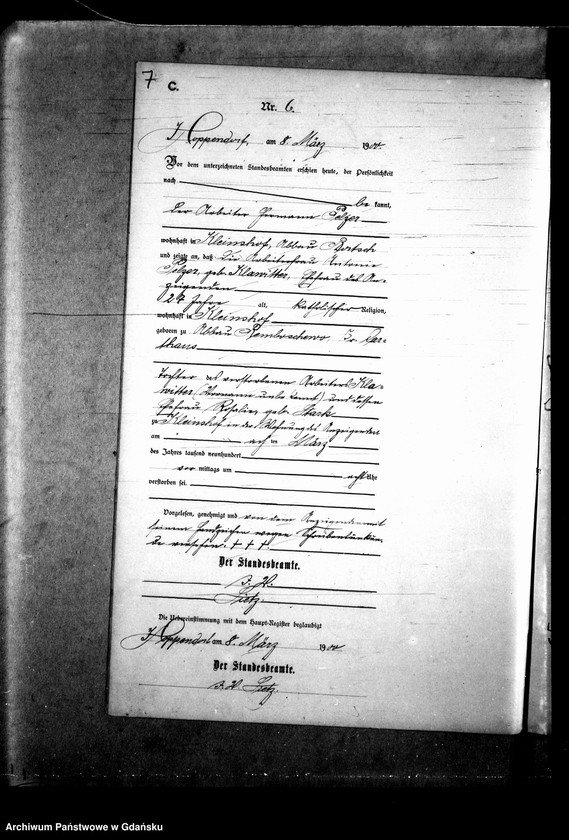 7
C.
Nr. 6.
Hoppendorf, am 8. März 1900.
Vor dem unterzeichneten Standesbeamten erschien heute, der Persönlichkeit
nach
be kannt,
der Arbeiter Hermann Pelzer
wohnhaft in Kleinshof, Abbau Bortsch
und zeigte an, daß die Arbeiterfrau Antonie
Pelzer, geb. Klawitter, Ehefrau des An-
zeigenden
27 Jahre alt, katholischer Religion,
wohnhaft in Kleinshof
geboren zu Abbau Rembroschewo, Kr. Car-
thaus
Tochter des verstorbenen Arbeiters Kla-
witter (Vorname unbekannt) und dessen
Ehefrau Rosalie, geb. Stark
zu Kleinshof in der Wohnung des Anzeigenden
am acht en März
des Jahres tausend neunhundert
vor mittags um acht Uhr
verstorben sei.
Vorgelesen, genehmigt und von dem Anzeigenden mit
seinem Handzeichen wegen Schreibensunkun-
de versehen. + + +.
Der Standesbeamte.
Die Uebereinstimmung mit dem Haupt-Register beglaubigt
Hoppendorf am 8. März 1900
Der Standesbeamte.
Archiwum Państwowe w Gdańsku